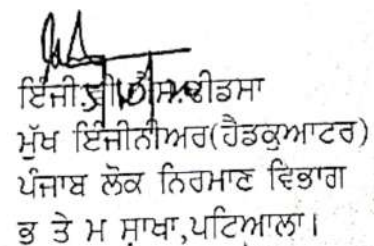 ਇੰਜੀ. ਢੀਂਡਸਾ
ਮੁੱਖ ਇੰਜੀਨੀਅਰ(ਹੈਡਕੁਆਟਰ)
ਪੰਜਾਬ ਲੋਕ ਨਿਰਮਾਣ ਵਿਭਾਗ
ਭ ਤੇ ਮ ਸ਼ਾਖਾ,ਪਟਿਆਲਾ।